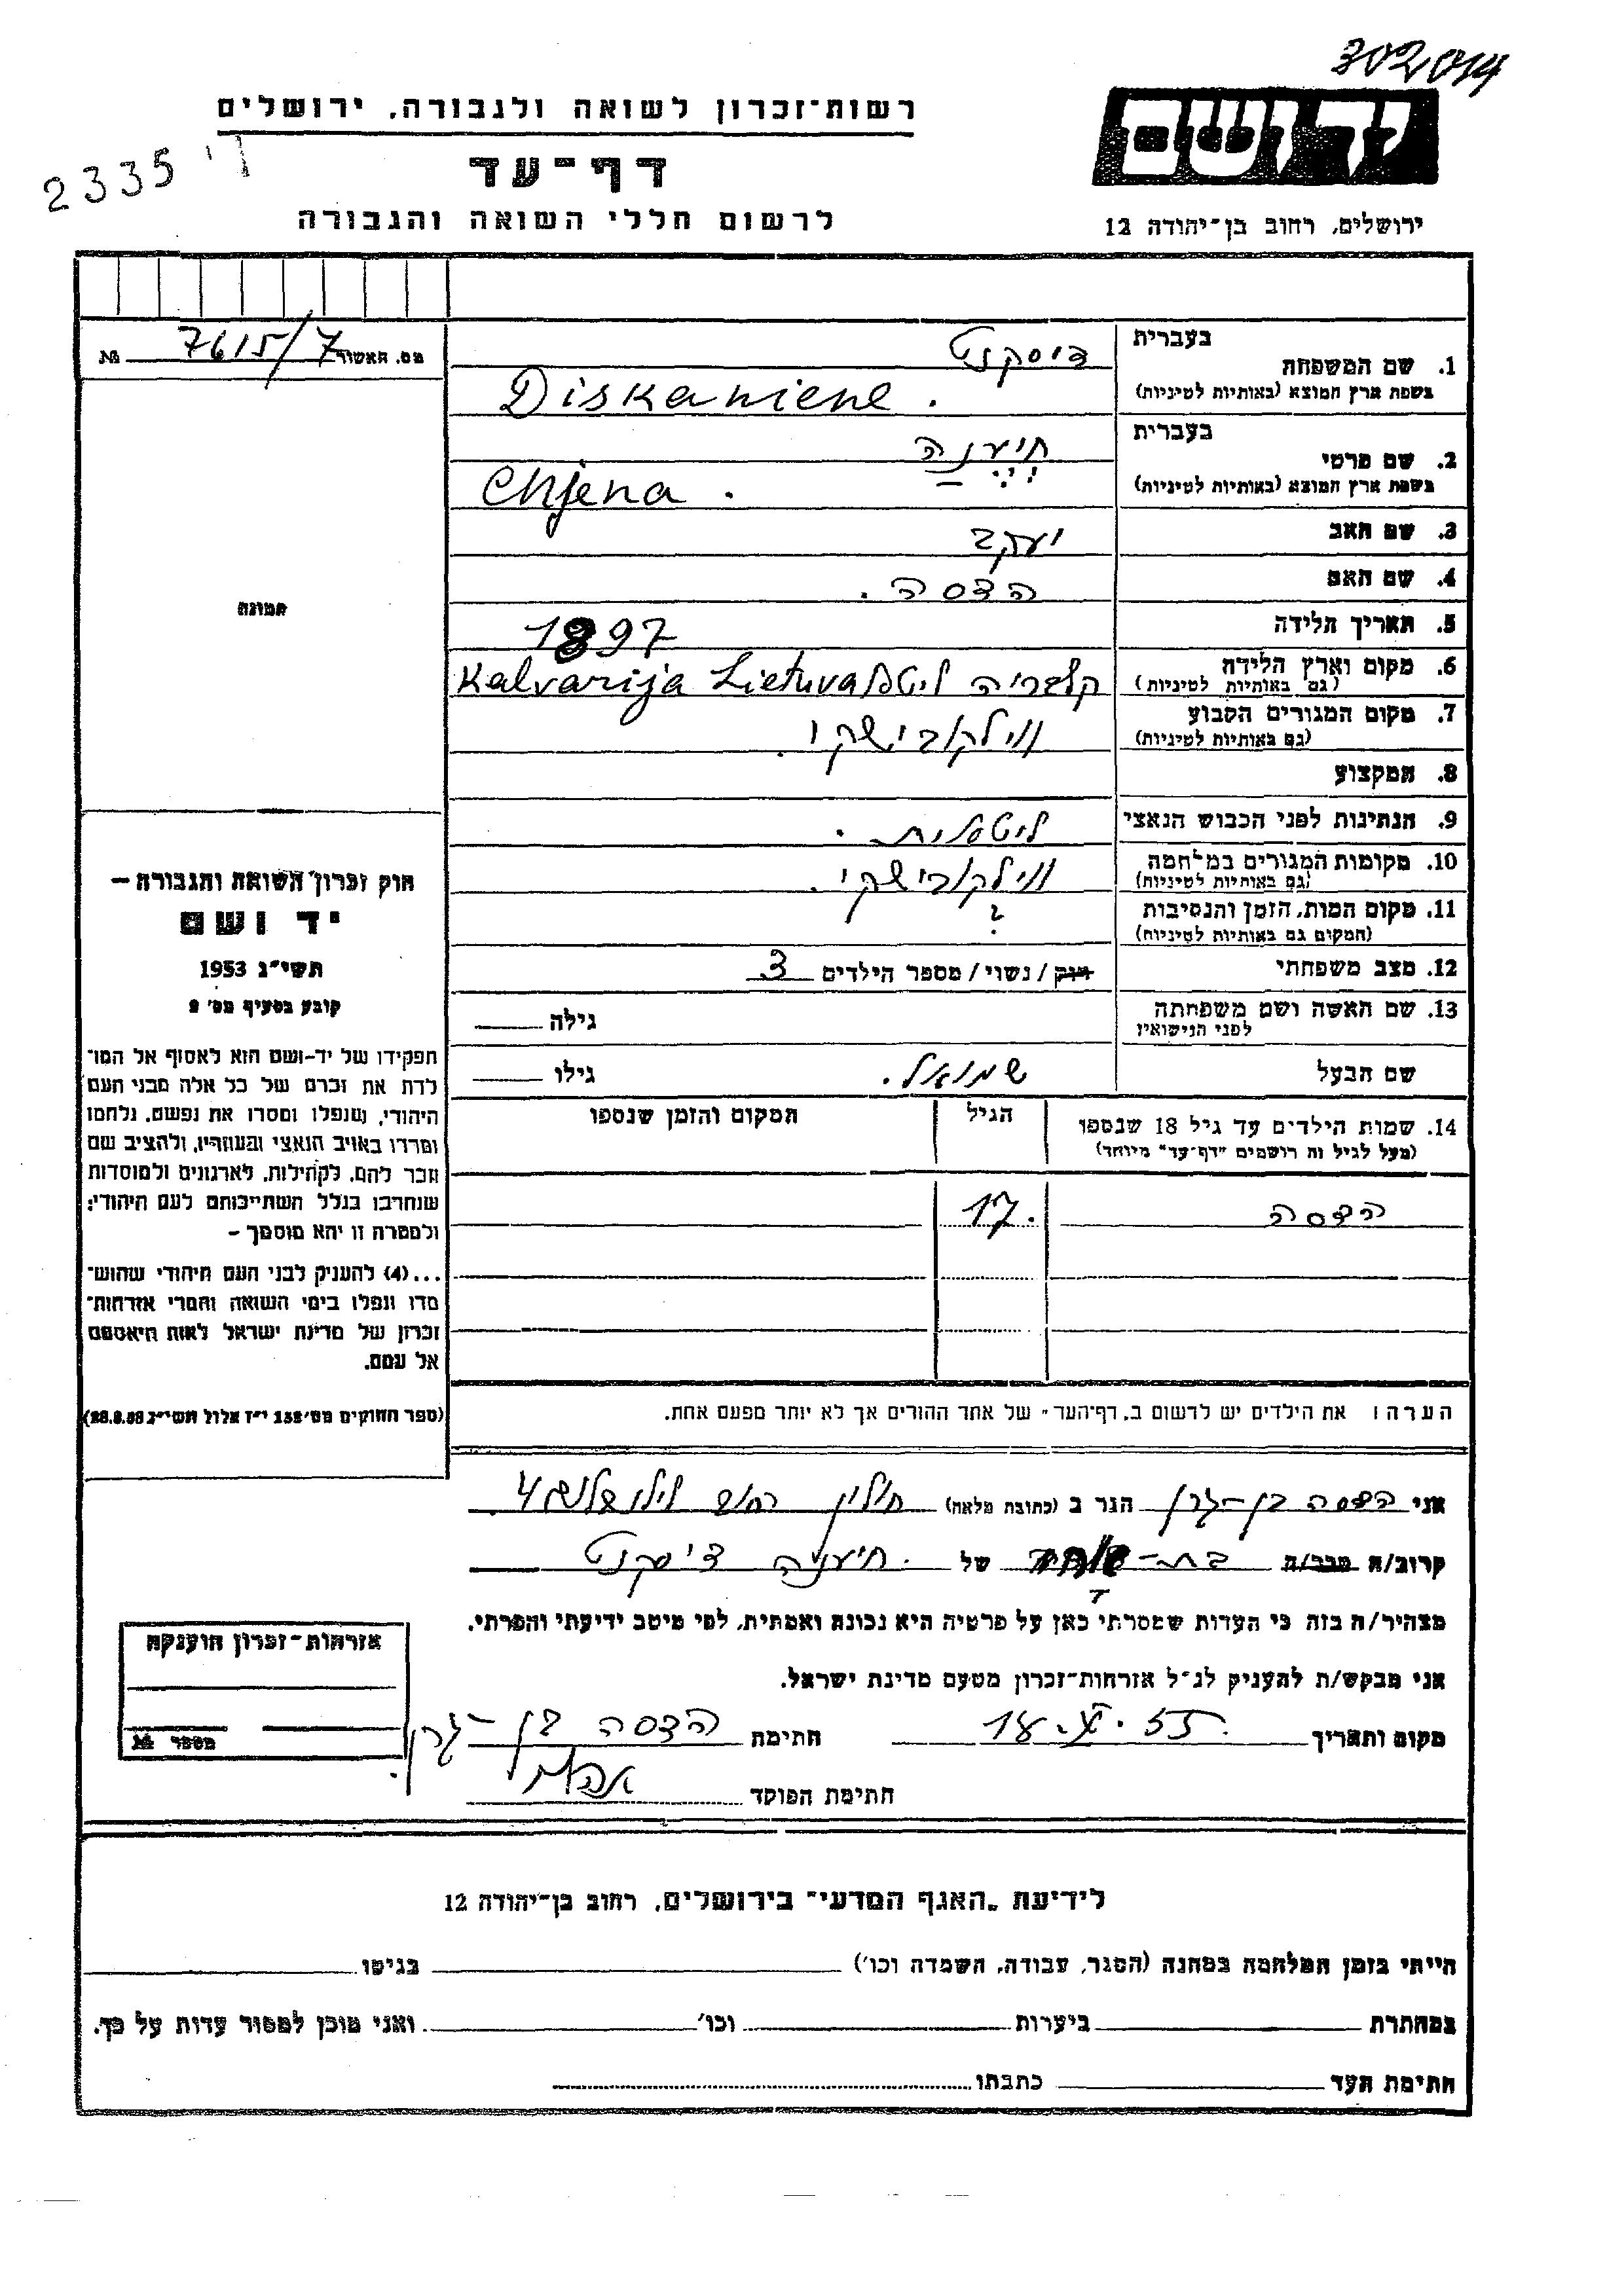 302014
יד ושם
רשות־זכרון לשואה ולגבורה, ירושלים
2335 י'
דף־עד
לרשום חללי השואה והגבורה
ירושלים, רחוב בן־יהודה 12
מס. האשור 7615/7 №
בעברית
1. שם המשפחה דיסקנט
בשפת ארץ המוצא (באותיות לטיניות) Diskaniene.
בעברית
2. שם פרטי חיענה
בשפת ארץ המוצא (באותיות לטיניות) Chjena.
3. שם האב יעקב
4. שם האם הדסה.
5. תאריך הלידה 1897
6. מקום וארץ הלידה קלבריה ליטא Kalvarija Lietuva
(גם באותיות לטיניות)
7. מקום המגורים הקבוע ווילקובישקי.
(גם באותיות לטיניות)
8. המקצוע
9. הנתינות לפני הכבוש הנאצי ליטאית.
10. מקומות המגורים במלחמה ווילקובישקי.
(גם באותיות לטיניות)
11. מקום המות, הזמן והנסיבות ?
(המקום גם באותיות לטיניות)
12. מצב משפחתי רווק / נשוי / מספר הילדים 3
13. שם האשה ושם משפחתה גילה
לפני הנישואין
שם הבעל שמואל. גילו
14. שמות הילדים עד גיל 18 שנספו הגיל המקום והזמן שנספו
(מעל לגיל זה רושמים "דף־עד" מיוחד)
הדסה 17.
הערה: את הילדים יש לרשום ב„דף־העד" של אחד ההורים אך לא יותר מפעם אחת.
תמונה
חוק זכרון השואה והגבורה –
יד ושם
תשי"ג 1953
קובע בסעיף מס' 2
תפקידו של יד-ושם הוא לאסוף אל המו־
לדת את זכרם של כל אלה מבני העם
היהודי, שנפלו ומסרו את נפשם, נלחמו
ומרדו באויב הנאצי ובעוזריו, ולהציב שם
וזכר להם, לקהילות, לארגונים ולמוסדות
שנחרבו בגלל השתייכותם לעם היהודי;
ולמטרה זו יהא מוסמך –
...(4) להעניק לבני העם היהודי שהוש־
מדו ונפלו בימי השואה והמרי אזרחות־
זכרון של מדינת ישראל לאות היאספם
אל עמם.
(ספר החוקים מס' 132 י"ז אלול תשי"ג 28.8.53)
אני הדסה בן-גרן הגר ב (כתובת מלאה) חולון רחוב
קרוב/ה מכר/ה בת- של חיענה דיסקנט
מצהיר/ה בזה כי העדות שמסרתי כאן על פרטיה היא נכונה ואמתית, לפי מיטב ידיעתי והכרתי.
אני מבקש/ת להעניק לנ"ל אזרחות־זכרון מטעם מדינת ישראל.
מקום ותאריך 18.X.55 חתימת הדסה בן-גרן.
חתימת הפוקד
אזרחות־זכרון הוענקה
מספר №
לידיעת „האגף המדעי" בירושלים, רחוב בן־יהודה 12
הייתי בזמן המלחמה במחנה (הסגר, עבודה, השמדה וכו') בגיטו
במחתרת ביערות וכו' ואני מוכן למסור עדות על כך.
חתימת העד כתבתו